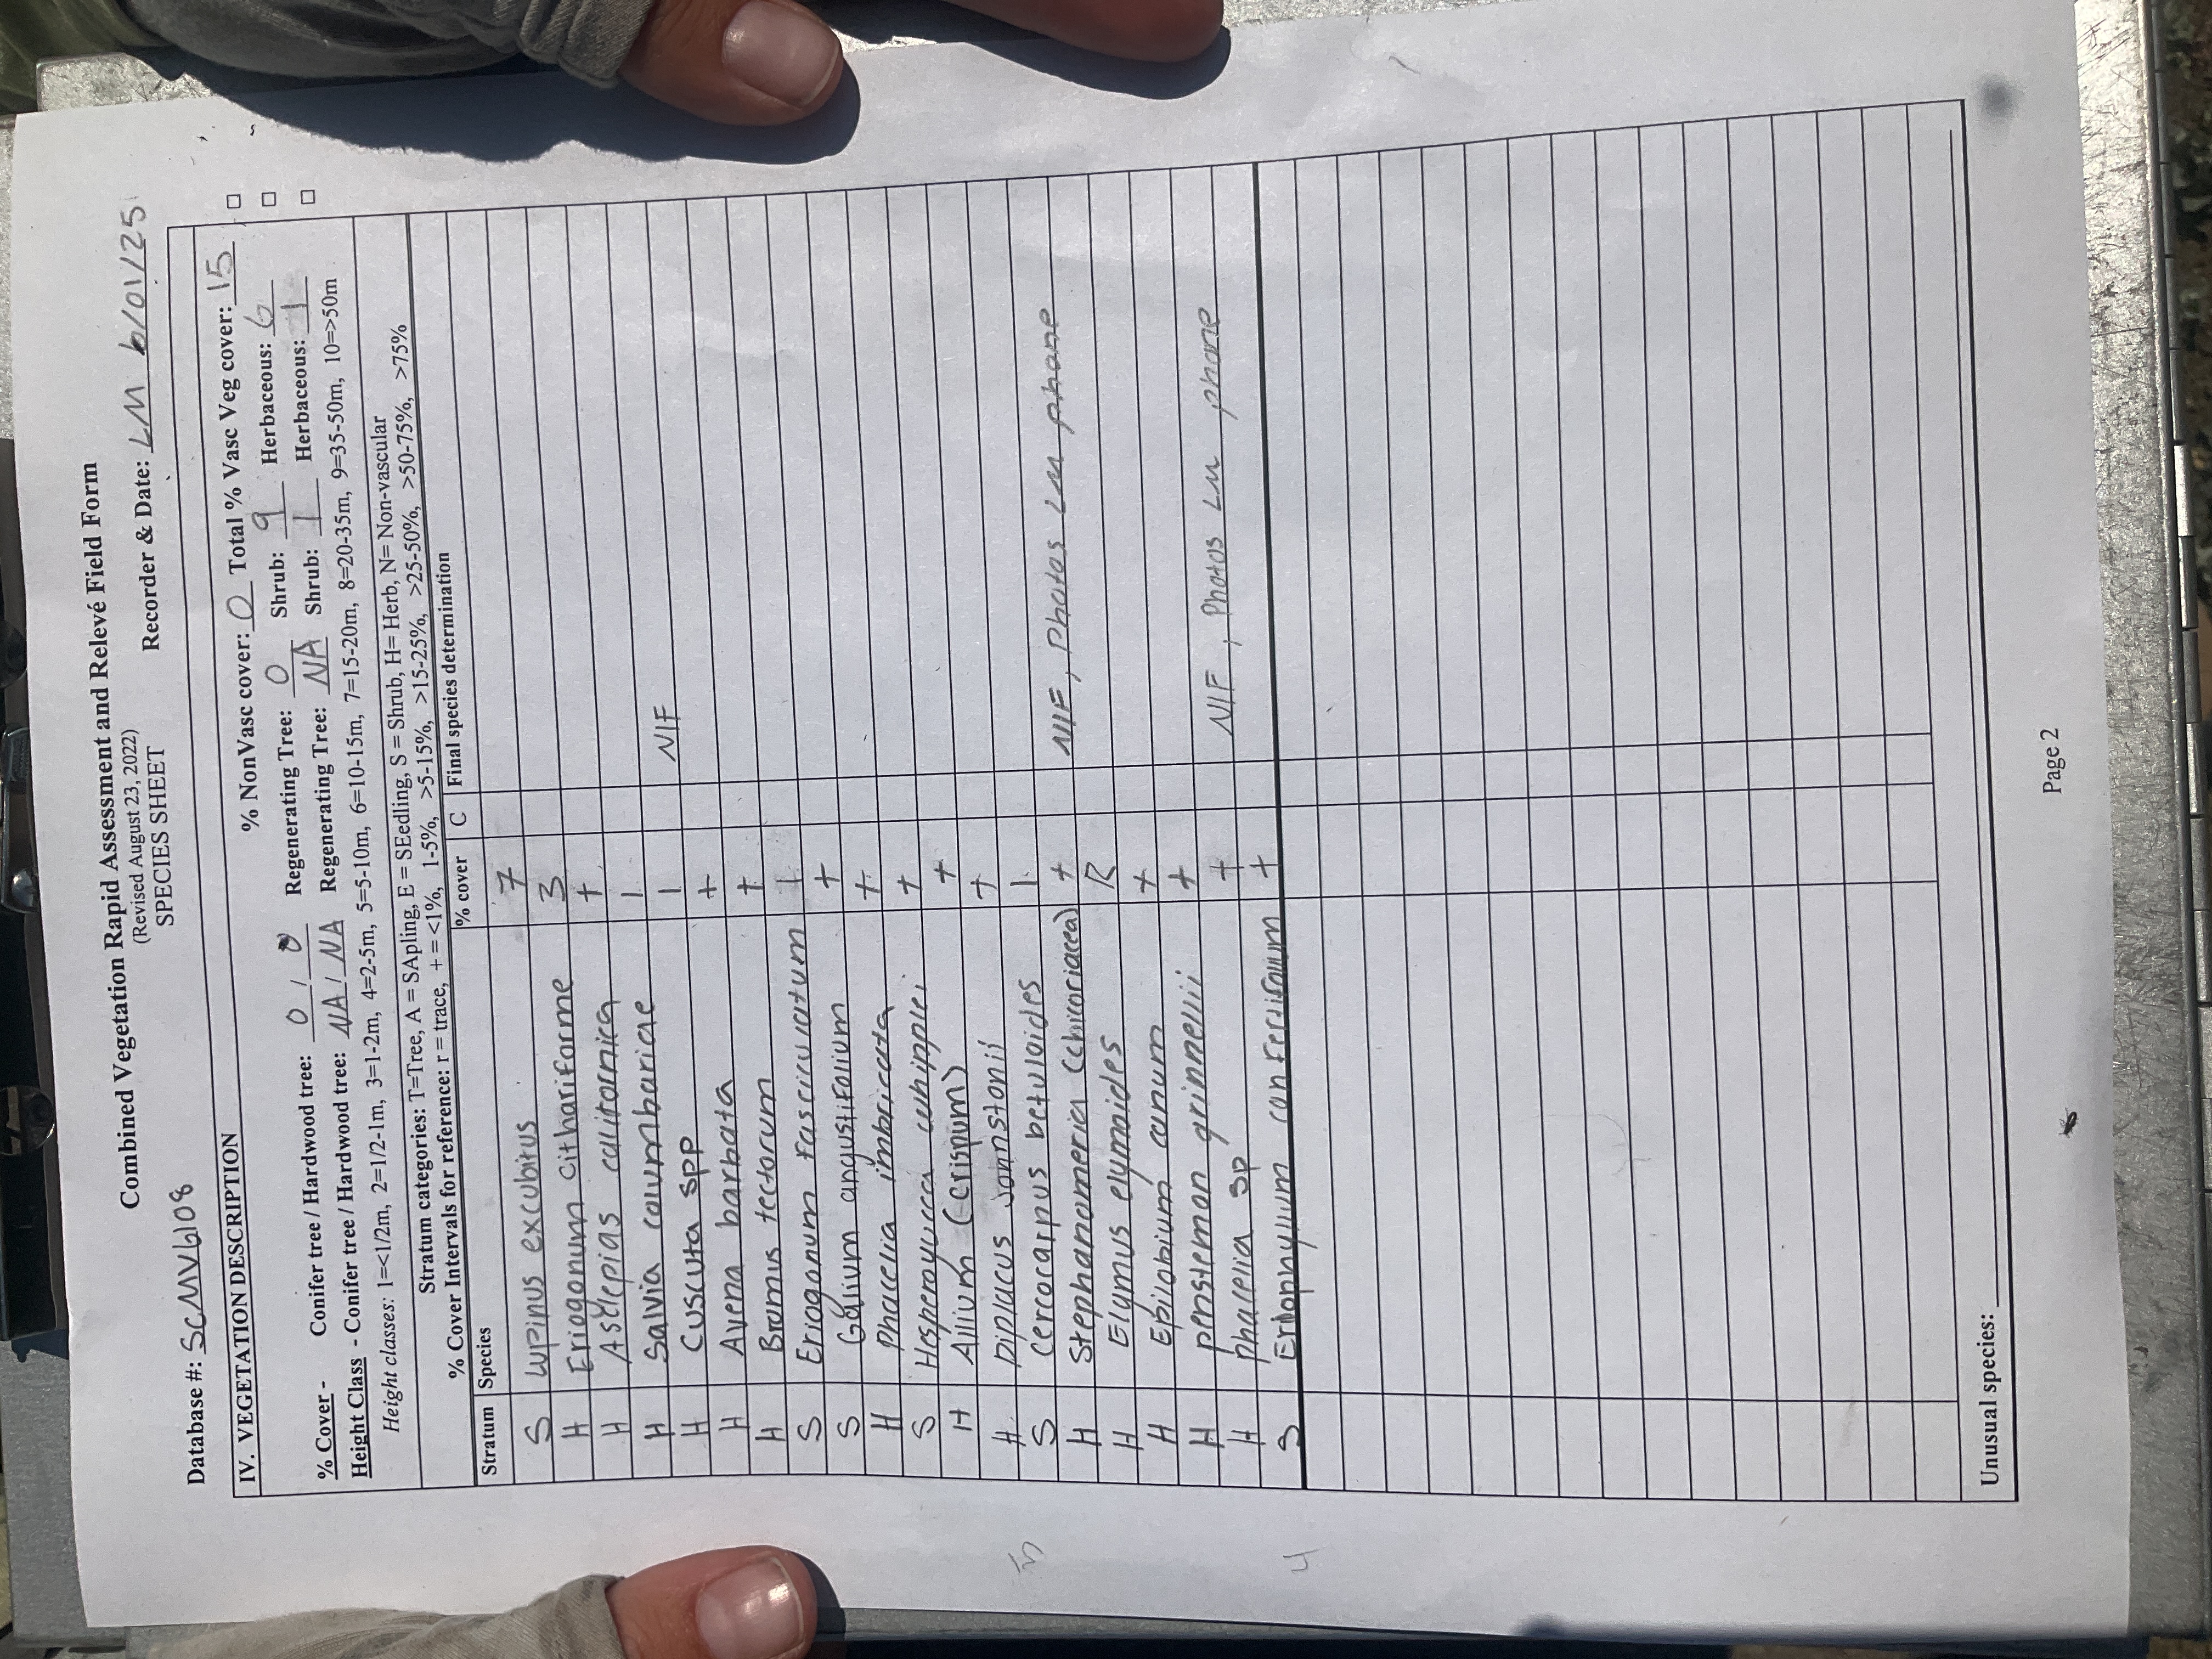 Combined Vegetation Rapid Assessment and Relevé Field Form
(Revised August 23, 2022)
SPECIES SHEET
Database #: SCMV6108 Recorder & Date: LM 6/01/25
IV. VEGETATION DESCRIPTION
% NonVasc cover: 0 Total % Vasc Veg cover: 15
% Cover - Conifer tree / Hardwood tree: 0 / 0 Regenerating Tree: 0 Shrub: 9 Herbaceous: 6
Height Class - Conifer tree / Hardwood tree: NA / NA Regenerating Tree: NA Shrub: 1 Herbaceous: 1
Height classes: 1=<1/2m, 2=1/2-1m, 3=1-2m, 4=2-5m, 5=5-10m, 6=10-15m, 7=15-20m, 8=20-35m, 9=35-50m, 10=>50m
Stratum categories: T=Tree, A = SApling, E = SEedling, S = Shrub, H= Herb, N= Non-vascular
% Cover Intervals for reference: r = trace, + = <1%, 1-5%, >5-15%, >15-25%, >25-50%, >50-75%, >75%
Stratum Species % cover C Final species determination
S Lupinus excubitus 7
H Eriogonum cithariforme 3
H Asclepias californica +
H Salvia columbariae 1
H Cuscuta spp 1 NIF
H Avena barbata +
H Bromus tectorum +
S Eriogonum fasciculatum 1
S Galium angustifolium +
H Phacelia imbricata +
S Hesperoyucca whipplei +
H Allium (crispum) +
H Diplacus johnstonii +
S Cercocarpus betuloides 1
H Stephanomeria (chicoriacea) + NIF, Photos LM phone
H Elymus elymoides R
H Epilobium canum +
H penstemon grinnellii +
H phacelia sp + NIF, Photos LM phone
S Eriophyllum confertiflorum +
Unusual species:
Page 2